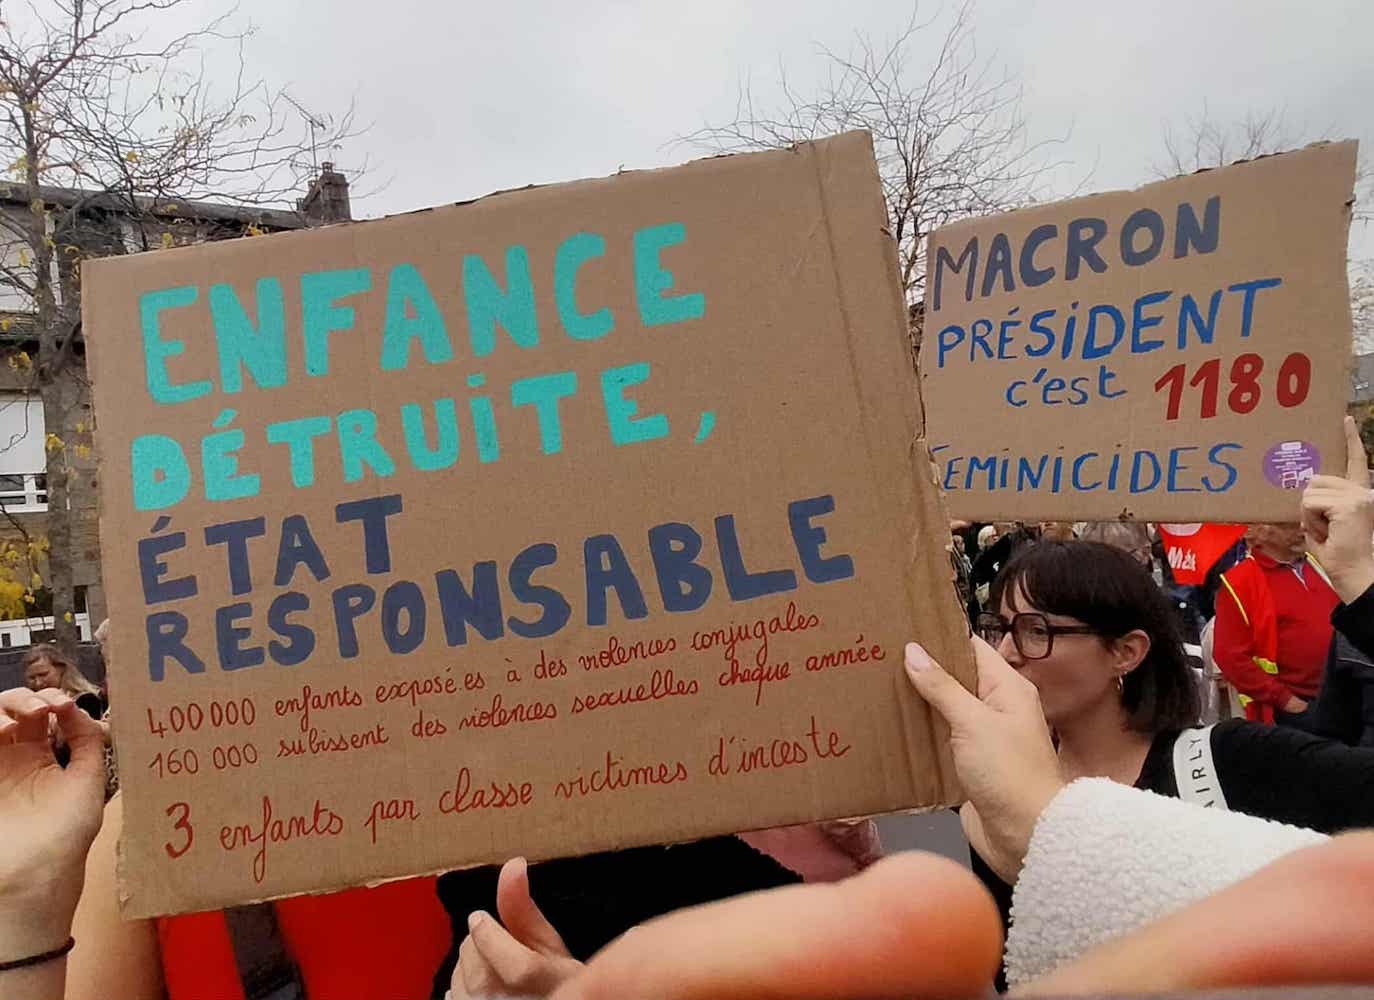 ENFANCE
DÉTRUITE,
ÉTAT
RESPONSABLE
400000 enfants exposé.es à des violences conjugales
160 000 subissent des violences sexuelles chaque année
3 enfants par classe victimes d'inceste
MACRON
PRÉSIDENT
c'est 1180
FEMINICIDES